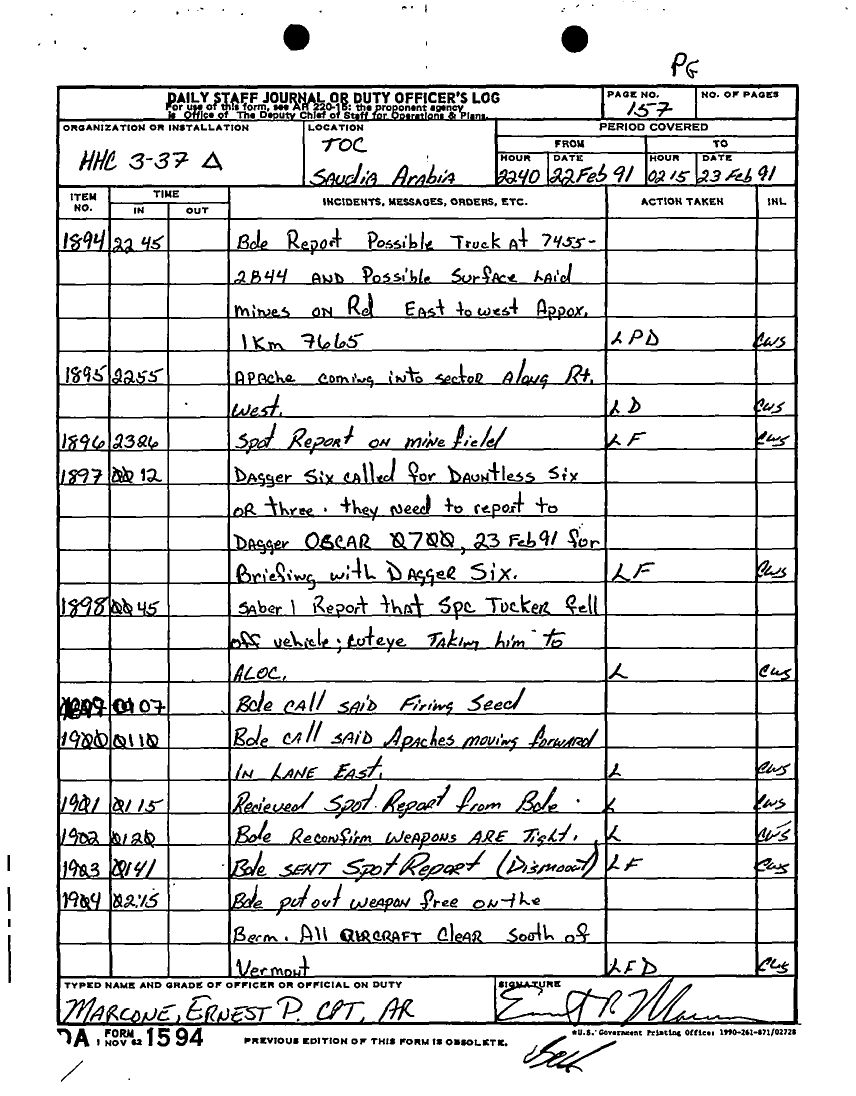 PG
DAILY STAFF JOURNAL OR DUTY OFFICER'S LOG
For use of this form, see AR 220-15: the proponent agency
is Office of The Deputy Chief of Staff for Operations & Plans.
PAGE NO.
157
NO. OF PAGES
ORGANIZATION OR INSTALLATION
HHC 3-37 Δ
LOCATION
TOC
Saudia Arabia
PERIOD COVERED
FROM TO
HOUR DATE HOUR DATE
2240 22 Feb 91 0215 23 Feb 91
ITEM NO. TIME IN OUT INCIDENTS, MESSAGES, ORDERS, ETC. ACTION TAKEN INL
1894 2245 Bde Report Possible Truck At 7455-
2844 AND Possible Surface LAid
mines ON Rd East to west Appox.
1 Km 7665 LPD CWS
1895 2255 APAche coming into sector Along Rt.
West. LD CWS
1896 2326 Spot Report on mine field LF CWS
1897 0012 DAgger Six cAlled for DAUNtless Six
OR three. they Need to report to
DAgger OSCAR 0700, 23 Feb 91 for
Briefing with DAggER Six. LF CWS
1898 0045 SABer 1 Report that Spc Tucker fell
off vehicle; cuteye TAKing him to
ALOC. L CWS
1899 0107 Bde CAll SAiD Firing Seed
1900 0110 Bde CAll SAiD Apaches moving forward
IN LANE EAST. L CWS
1901 0115 Recieved Spot Report from Bde. L CWS
1902 0120 Bde Reconfirm WEAPONS ARE Tight. L CWS
1903 0141 Bde SENT Spot Report (Dismount) LF CWS
1904 0215 Bde put out weapon free on the
Berm. All AIRCRAFT Clear South of
Vermont LFD CWS
TYPED NAME AND GRADE OF OFFICER OR OFFICIAL ON DUTY
MARCONE, ERNEST P. CPT, AR
SIGNATURE
DA FORM 1 NOV 62 1594
PREVIOUS EDITION OF THIS FORM IS OBSOLETE.
*U.S. Government Printing Office: 1990-261-871/02728